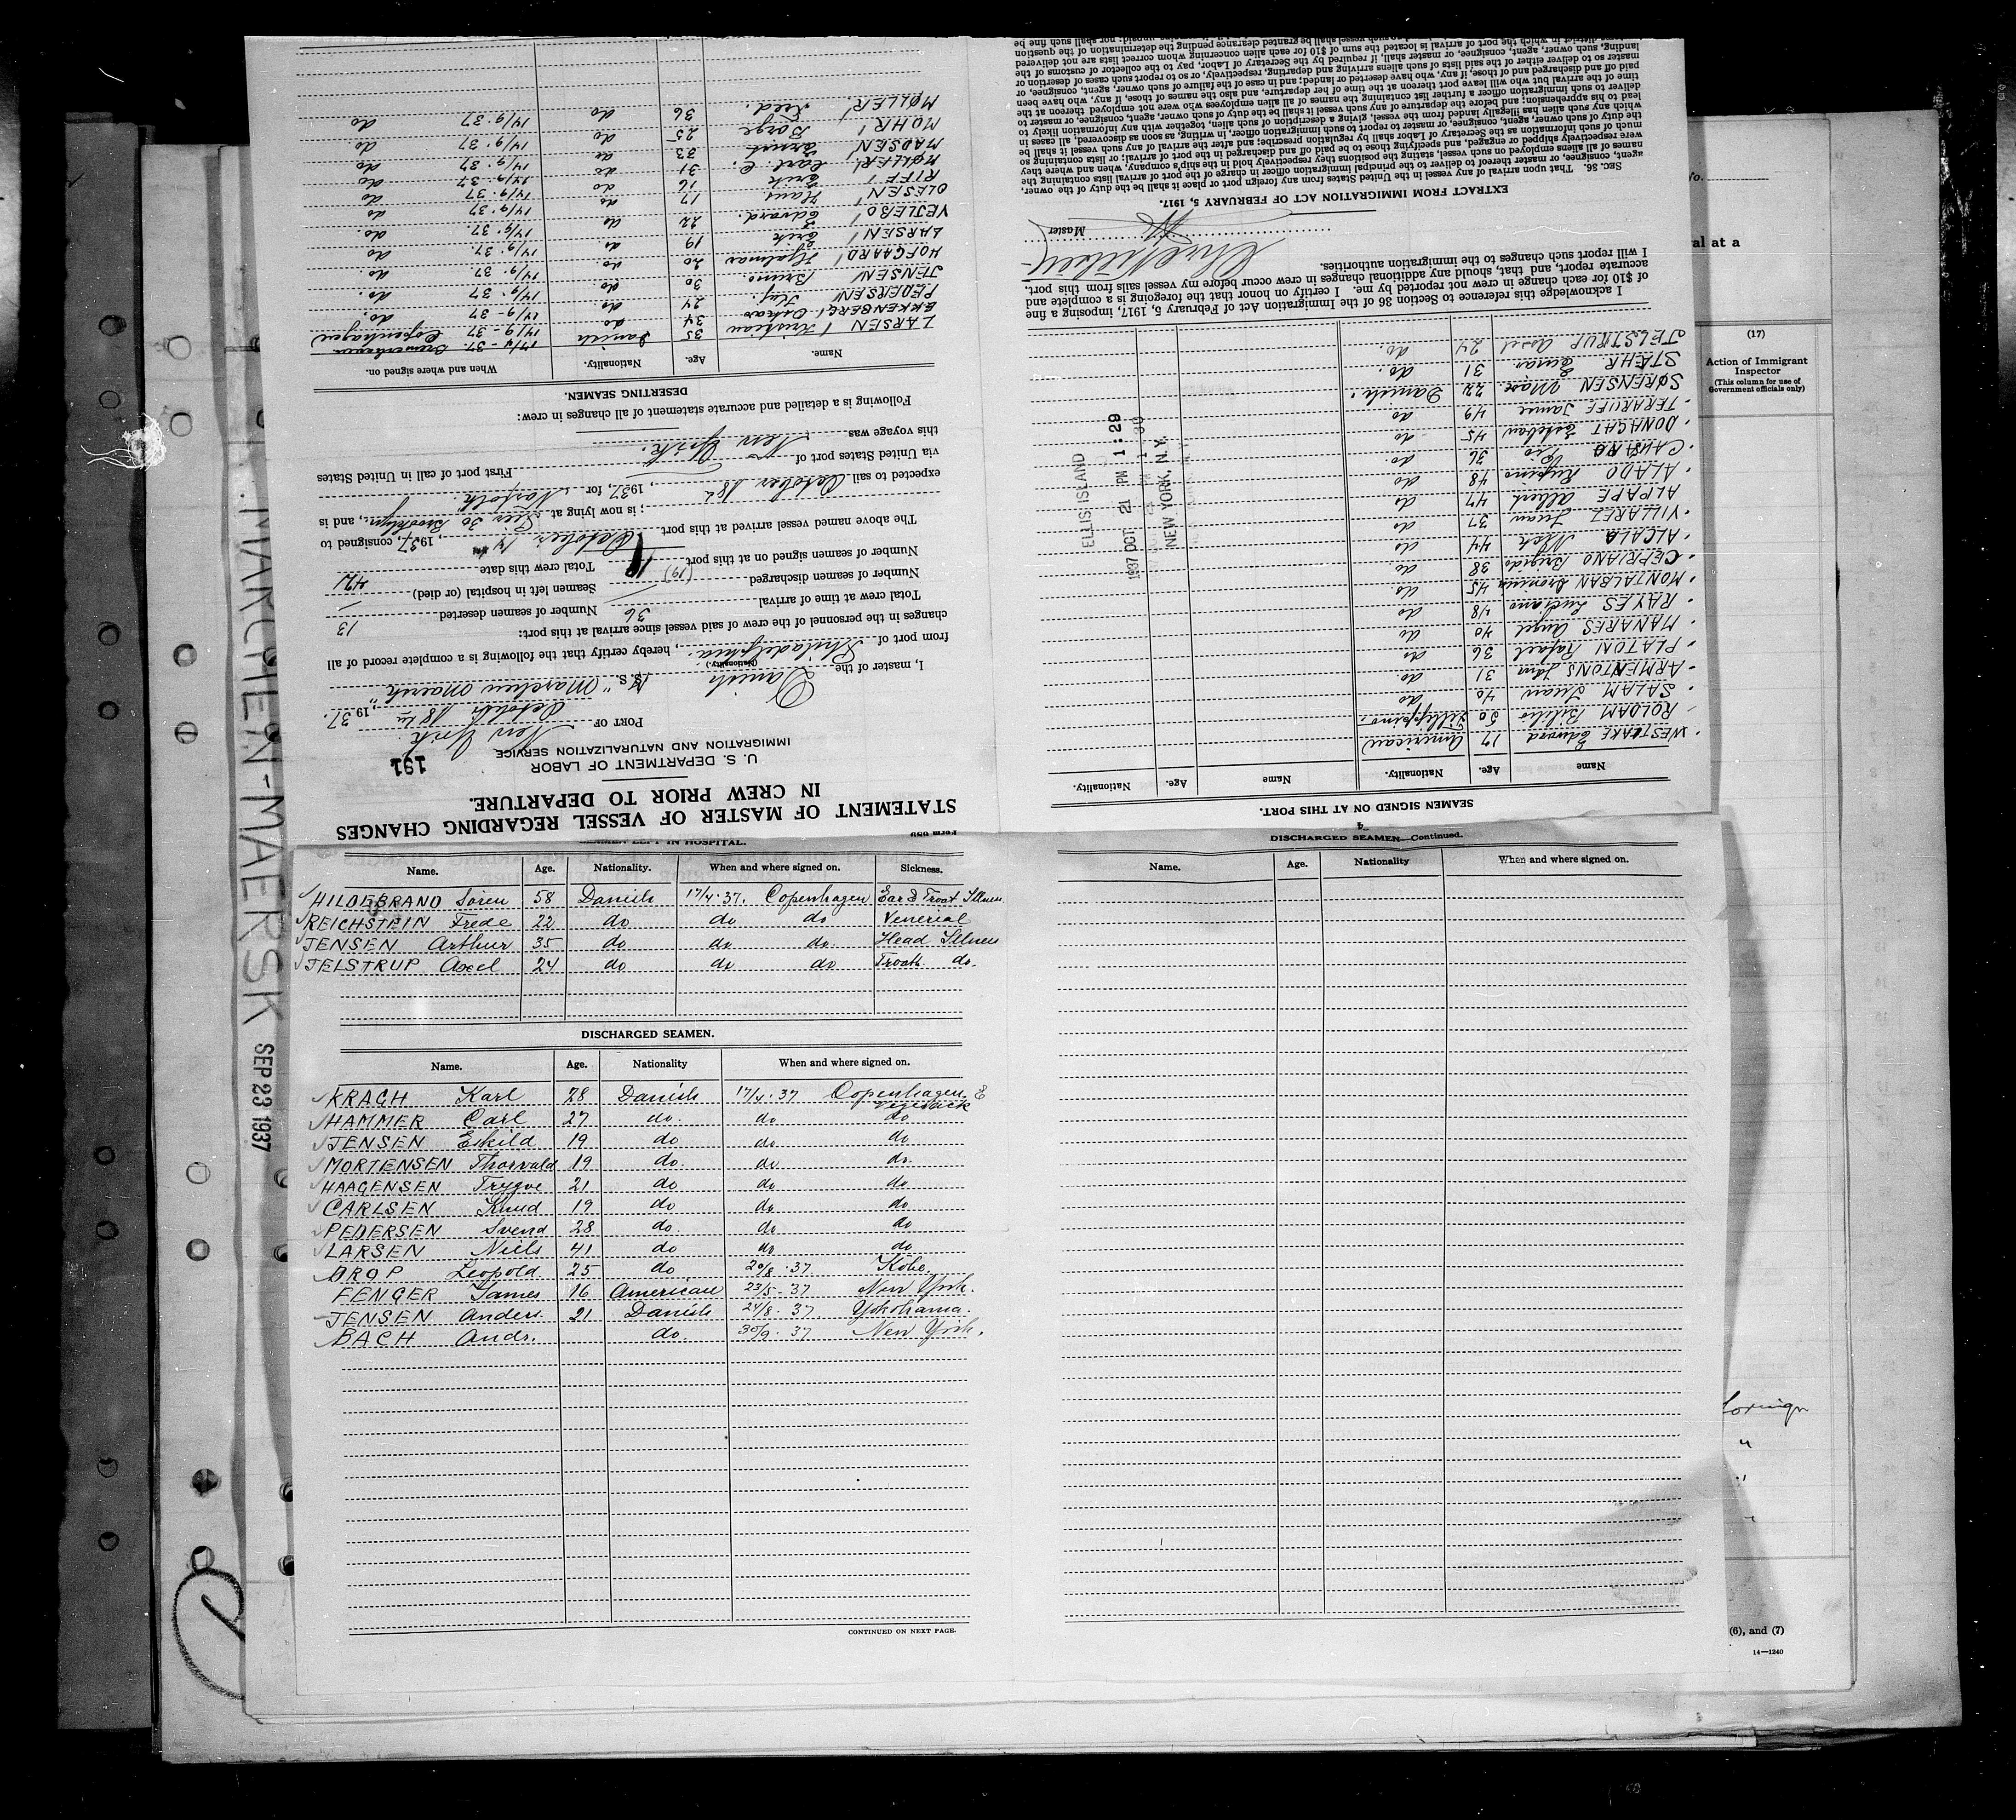 MARCHEN-MAERSK SEP 23 1937
Form 689
STATEMENT OF MASTER OF VESSEL REGARDING CHANGES
IN CREW PRIOR TO DEPARTURE.
U. S. DEPARTMENT OF LABOR
IMMIGRATION AND NATURALIZATION SERVICE
191
PORT OF New York.
October 18th, 1937.
I, master of the Danish M/S. "Marchen Maersk",
(Nationality.)
from port of Philadelphia, hereby certify that the following is a complete record of all
changes in the personnel of the crew of said vessel since arrival at this port:
Total crew at time of arrival 36 Number of seamen deserted 13
Number of seamen discharged / Seamen left in hospital (or died) /
Number of seamen signed on at this port (19) Total crew this date 42
The above named vessel arrived at this port October 14th, 1937, consigned to
; is now lying at Pier 30 Brooklyn, and is
expected to sail October 18th, 1937, for Norfolk.
via United States port of First port of call in United States
this voyage was New York.
Following is a detailed and accurate statement of all changes in crew:
DESERTING SEAMEN.
Name. Age. Nationality. When and where signed on.
LARSEN Kristian 35 Danish 14/9-37. Copenhagen
EKKENBERG Oskar 34 do 14/9-37 do.
PEDERSEN 24 do. 14/9-37 do.
JENSEN Bruno 30 do 14/9.37 do.
HOFGAARD Hjalmar 20 do. 14/9.37. do
LARSEN Erik 19 do. 14/9.37. do.
VEJLEBO Edvard. 22 do. 14/9.37 do
OLESEN Hans 17 do 14/9.37 do
RIFF Erik 16 do 14/9.37. do
MØLLER Carl C. 31 do 14/9.37 do
MADSEN 33 do 14/9.37 do.
MOHR Børge 25 do 14/9.37 do.
MØLLER 36 do 14/9.37 do
SEAMEN SIGNED ON AT THIS PORT.
Name Age. Nationality. Name Age. Nationality.
WESTLAKE Edward 17 American
ROLDAM 50 Fillippino.
SALAM Juan 40 do
ARMENTONS John 31 do.
PLATON Rafael 36 do
MANARES Angel 40 do
RAYES Luciano 48 do
MONTALBAN 45 do.
CEFRIANO Brigido 38 do
ALCALA Nick 44 do
VILLAREZ Juan 37 do
ALPAPE Albert 47 do
ALADO Rufino 48 do
Pio 36 do.
DONAGHT Esteban 45 do
Jamie 49 do
SØRENSEN Max 22 Danish.
STÆHR 31 do.
JELSTRUP Axel 24 do.
ELLIS ISLAND
1937 OCT 21 PM 1:29
NEW YORK, N. Y.
I acknowledge this reference to Section 36 of the Immigration Act of February 5, 1917, imposing a fine
of $10 for each change in crew not reported by me. I certify on honor that the foregoing is a complete and
accurate report, and that, should any additional changes in crew occur before my vessel sails from this port,
I will report such changes to the immigration authorities.
Master
EXTRACT FROM IMMIGRATION ACT OF FEBRUARY 5, 1917.
SEC. 36. That upon arrival of any vessel in the United States from any foreign port or place it shall be the duty of the owner,
agent, consignee, or master thereof to deliver to the principal immigration officer in charge of the port of arrival lists containing the
names of all aliens employed on such vessel, stating the positions they respectively hold in the ship company, when and where they
were respectively shipped or engaged, and specifying those to be paid off and discharged in the port of arrival; or lists containing so
much of such information as the Secretary of Labor shall by regulation prescribe and after the arrival of any such vessel it shall be
the duty of such owner, agent, consignee, or master to report to such immigration officer, in writing, as soon as discovered, all cases in
which any such alien has illegally landed from the vessel, giving a description of such alien, together with any information likely to
lead to his apprehension; and before the departure of any such vessel it shall be the duty of such owner, agent, consignee, or master to
deliver to such immigration officer a further list containing the names of all alien employees who were not employed thereon at the
time of the arrival but who will leave port thereon at the time of her departure, and also the names of those, if any, who have been
paid off and discharged and of those, if any, who have deserted or landed; and in case of the failure of such owner, agent, consignee, or
master so to deliver either of the said lists of such aliens arriving and departing, respectively, or so to report such cases of desertion or
landing, such owner, agent, consignee, or master shall, if required by the Secretary of Labor, pay to the collector of customs of the
district in which the port of arrival is located the sum of $10 for each alien concerning whom correct lists are not delivered
SEAMEN LEFT IN HOSPITAL.
Name. Age. Nationality. When and where signed on. Sickness.
HILDEBRAND Sören 58 Danish 17/4.37. Copenhagen Ear & Troat Illnes
REICHSTEIN Frede 22 do do do Venerial
JENSEN Arthur 35 do do do. Head Illnes
JELSTRUP Axel 24 do do do Troath do.
DISCHARGED SEAMEN.
Name. Age. Nationality When and where signed on.
KRAGH Karl 28 Danish 17/4.37 Copenhagen.
HAMMER Carl 27 do. do do
JENSEN Eskild 19 do do do
MORTENSEN Thorvald 19 do. do do.
HAAGENSEN Trygve 21 do do do
CARLSEN Knud 19 do do do
PEDERSEN Svend 28 do. do do
LARSEN Niels 41 do do do
DROP Leopold. 25 do 20/8.37. Kobe.
FENGER James 16 American 23/5-37 New York.
JENSEN Anders. 21 Danish 24/8.37. Yokohama.
BACH Andr. do. 30/9.37 New York.
CONTINUED ON NEXT PAGE.
DISCHARGED SEAMEN—Continued.
Name. Age. Nationality When and where signed on.
No.
al at a
(17)
Action of Immigrant
Inspector
(This column for use of
Government officials only)
(6), and (7)
14—1240